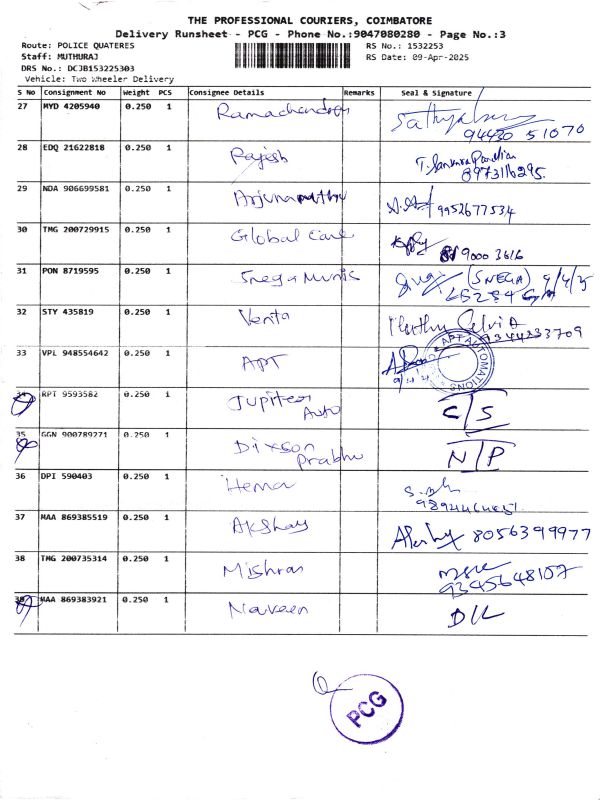 THE PROFESSIONAL COURIERS, COIMBATORE
Delivery Runsheet - PCG - Phone No.:9047080280 - Page No.:3
Route: POLICE QUATERES RS No.: 1532253
Staff: MUTHURAJ RS Date: 09-Apr-2025
DRS No.: DCJB153225303
Vehicle: Two Wheeler Delivery
S No Consignment No Weight PCS Consignee Details Remarks Seal & Signature
27 MYD 4205940 0.250 1 Ramachandran
94430 51070
28 EDQ 21622818 0.250 1 Rajesh
8973116295
29 NDA 906699581 0.250 1 Arjunamuthu 9952677534
30 TMG 200729915 0.250 1 Global Care 9000 3616
31 PON 8719595 0.250 1 Snega Munis (SNEGA) 9/4/25
32 STY 435819 0.250 1 Venta
9344233709
33 VPL 948554642 0.250 1 APT APT AUTOMATIONS
34 RPT 9593582 0.250 1 Jupiter Auto C/S
35 GGN 900789271 0.250 1 Dixson Prabhu N/P
36 DPI 590403 0.250 1 Hema
37 MAA 869385519 0.250 1 Akshay 8056399977
38 TMG 200735314 0.250 1 Mishran
9345648107
39 MAA 869383921 0.250 1 Naveen D/L
PCG